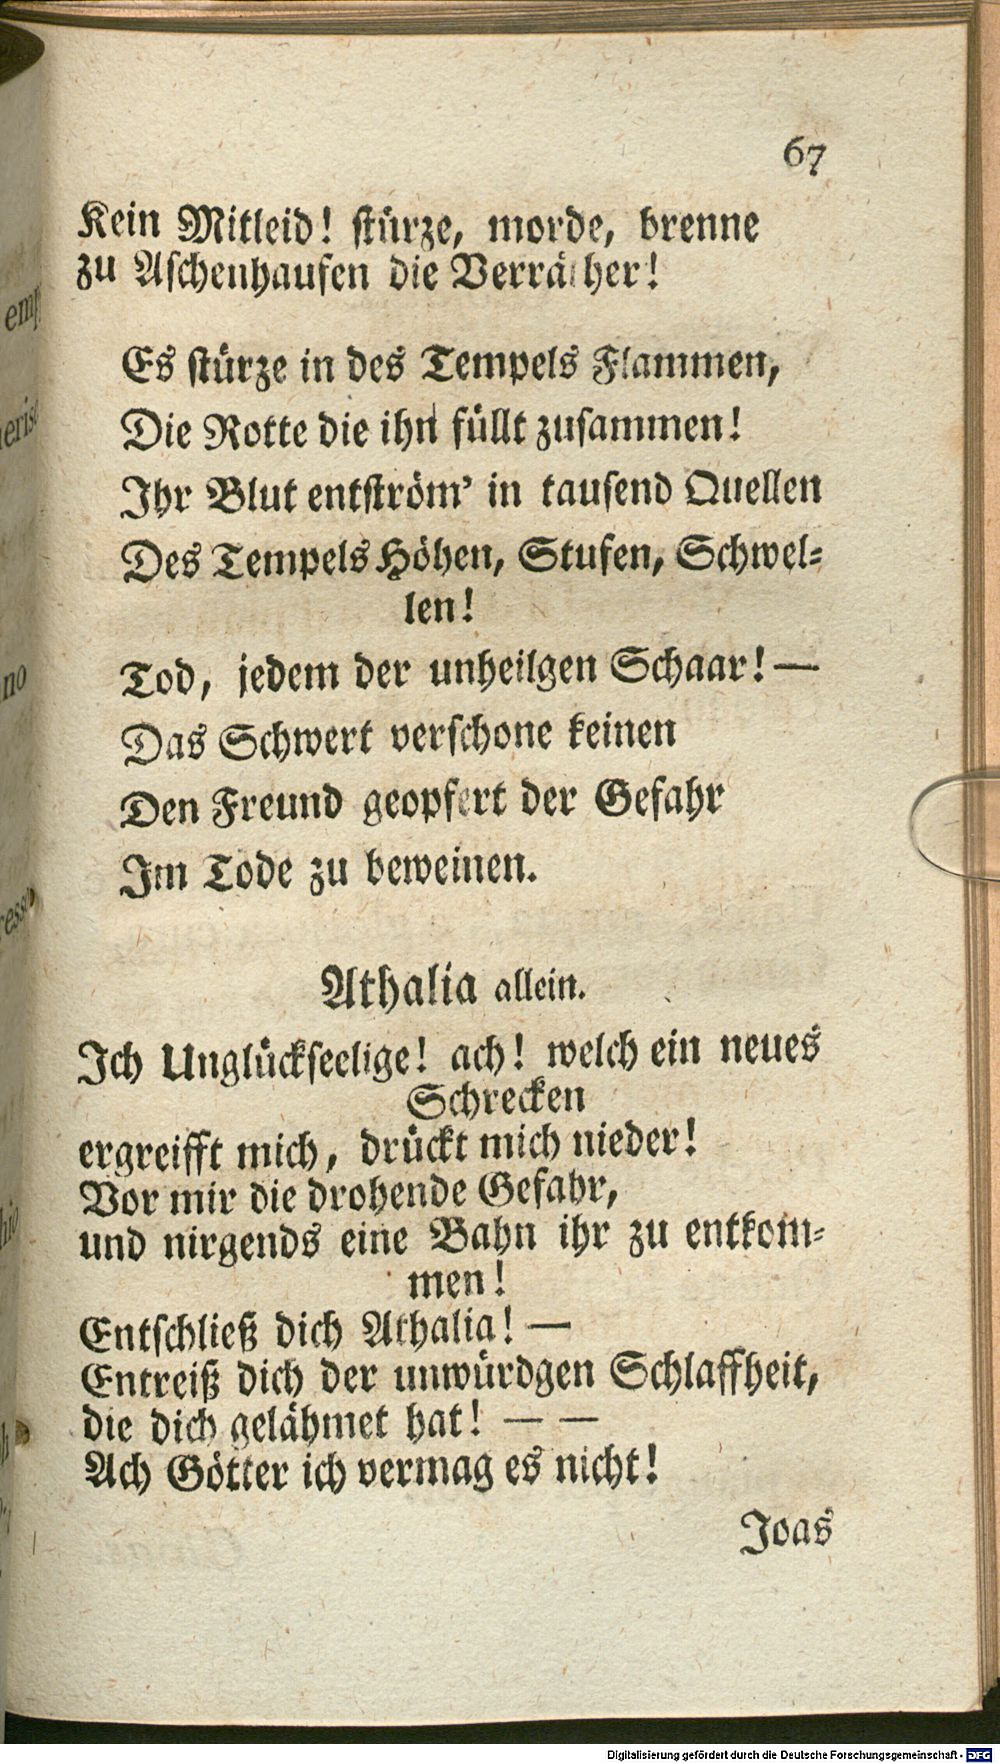 67
Kein Mitleid! stürze, morde, brenne
zu Aschenhaufen die Verräther!
Es stürze in des Tempels Flammen,
Die Rotte die ihn füllt zusammen!
Ihr Blut entström' in tausend Quellen
Des Tempels Höhen, Stufen, Schwel-
len!
Tod, jedem der unheilgen Schaar! —
Das Schwert verschone keinen
Den Freund geopfert der Gefahr
Im Tode zu beweinen.
Athalia allein.
Ich Unglückseelige! ach! welch ein neues
Schrecken
ergreifft mich, drückt mich nieder!
Vor mir die drohende Gefahr,
und nirgends eine Bahn ihr zu entkom-
men!
Entschließ dich Athalia! —
Entreiß dich der unwürdgen Schlaffheit,
die dich gelähmet hat! — —
Ach Götter ich vermag es nicht!
Joas
Digitalisierung gefördert durch die Deutsche Forschungsgemeinschaft - DFG